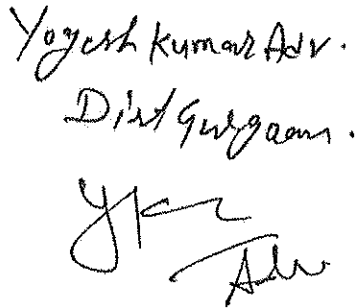 Yogesh Kumar Adv.
Dist Gurgaon.
YK
Adv